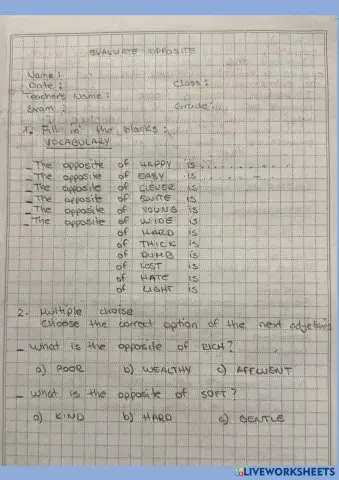 EVALUATE OPPOSITE
Name:
Date: Class:
Teacher's Name:
Exam: Grade:
1. Fill in the blanks:
VOCABULARY
_ The opposite of HAPPY is..............
_ The opposite of EASY is.........
_ The opposite of CLEVER is
_ The opposite of QUITE is
_ The opposite of YOUNG is
_ The opposite of WIDE is
of HARD is
of THICK is
of DUMB is
of LOST is
of HATE is
of LIGHT is
2. Multiple choise
Choose the correct option of the next adjetives
_ What is the opposite of RICH?
a) POOR b) WEALTHY c) AFFLUENT
_ What is the opposite of SOFT?
a) KIND b) HARD c) GENTLE
LIVEWORKSHEETS